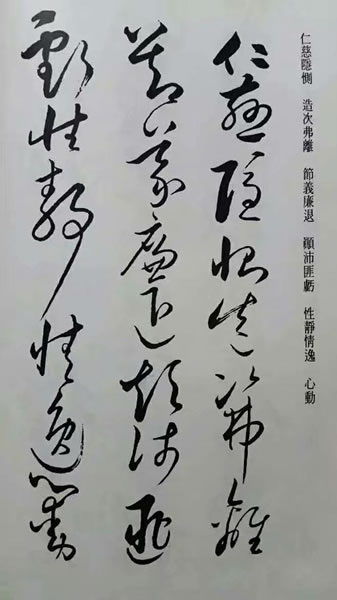 仁慈隱惻 造次弗離 節義廉退 顚沛匪虧 性靜情逸 心動
仁慈隱惻造次弗離
節義廉退顛沛匪
虧性靜情逸心動